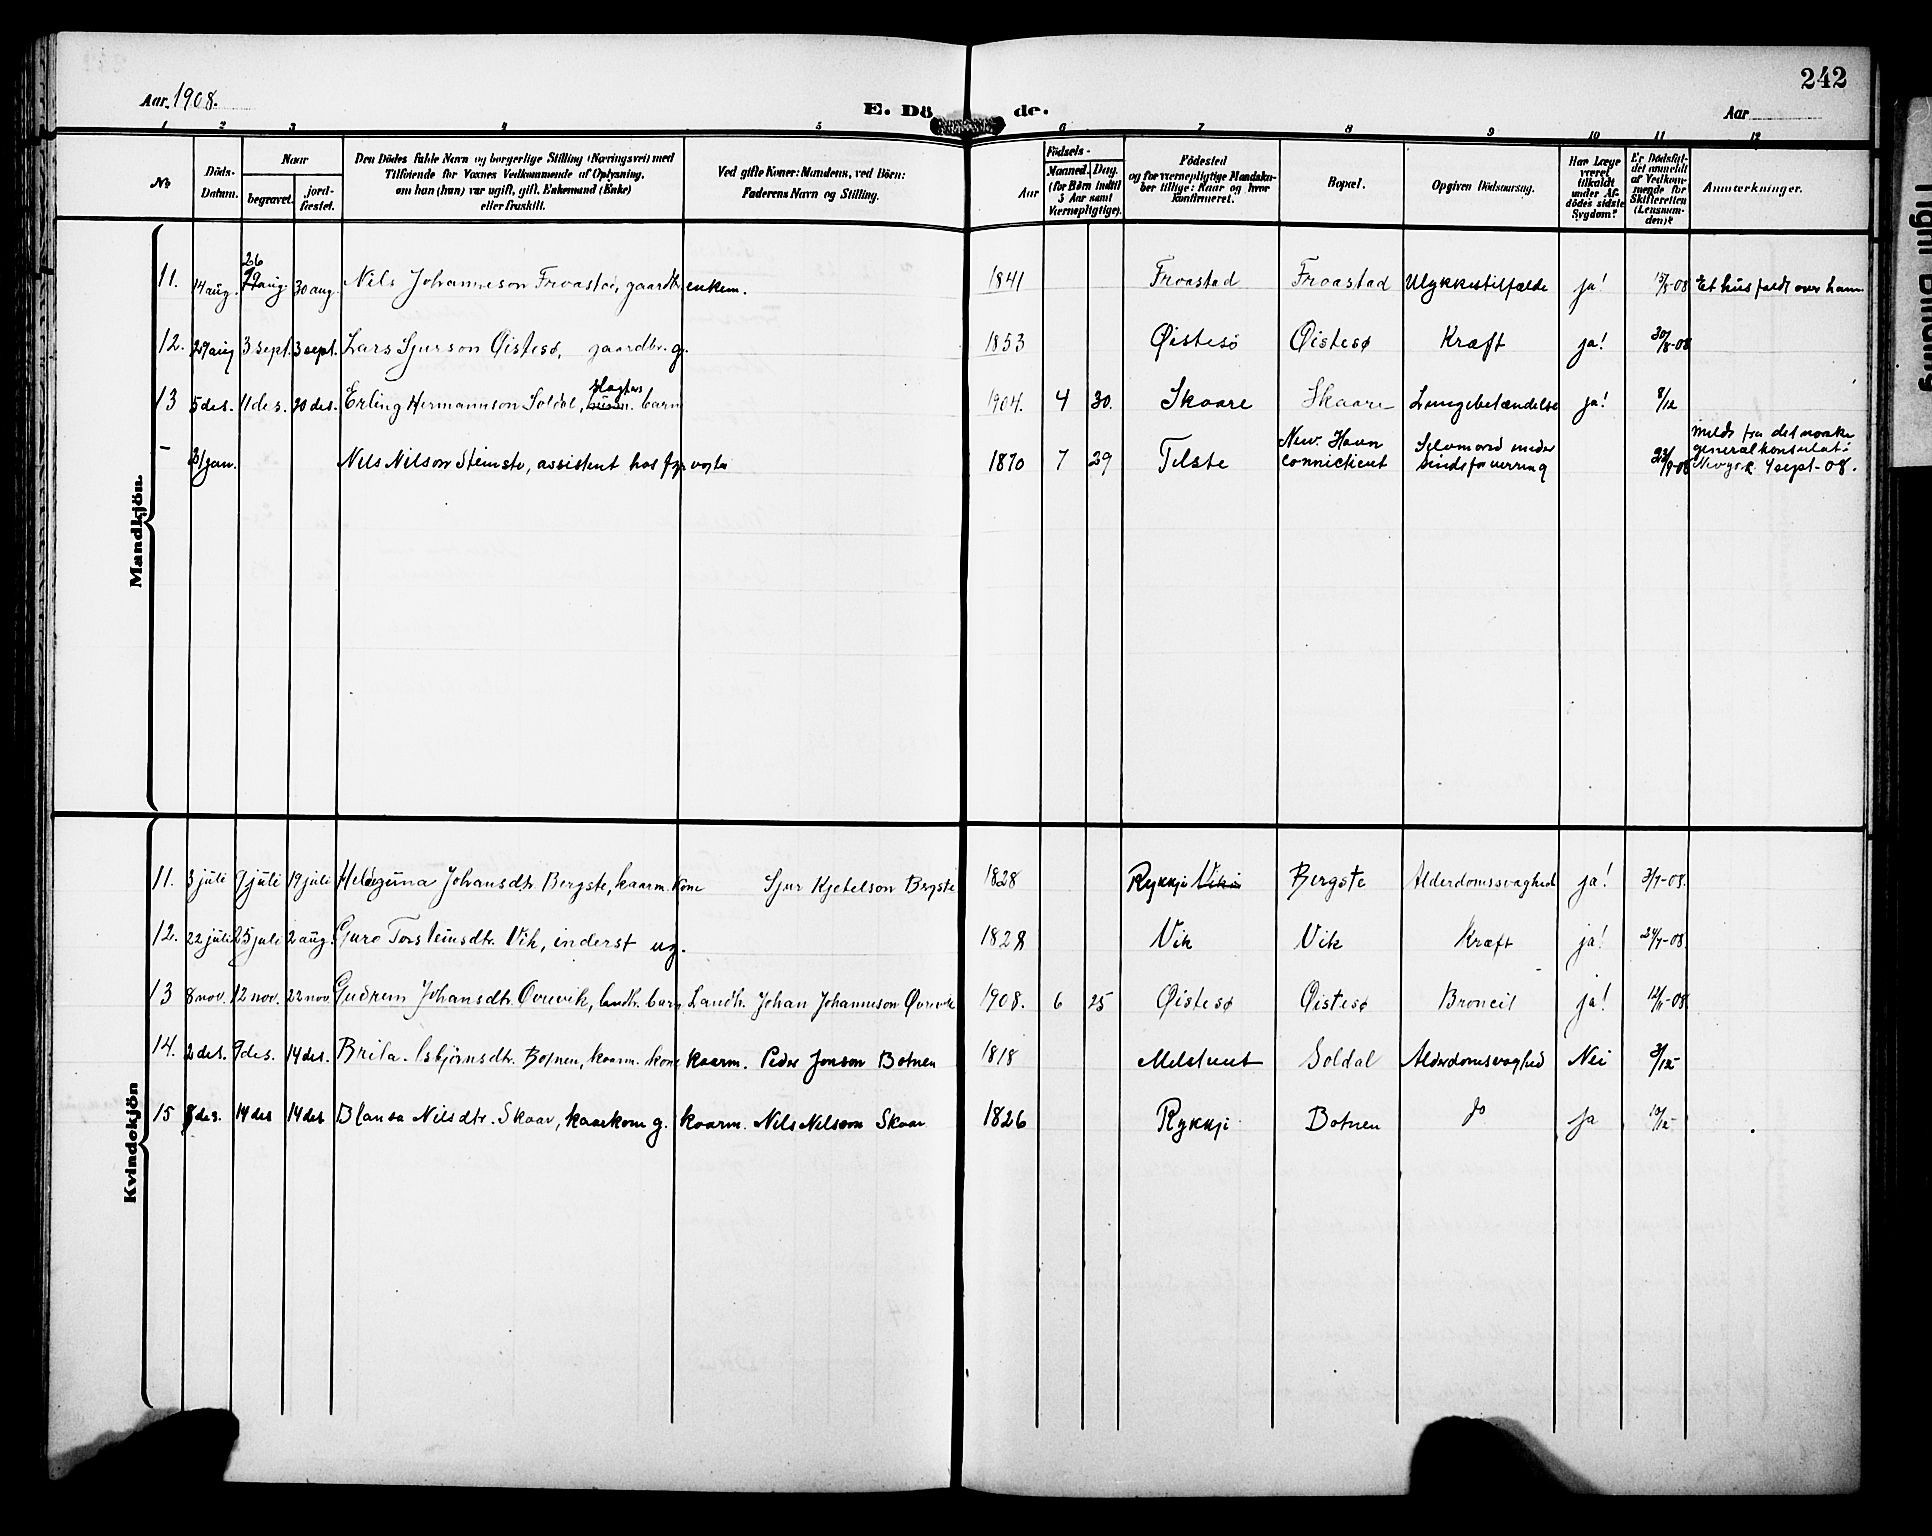 242
Aar 1908. E. Dö de. Aar
1 2 3 4 5 6 7 8 9 10 11 12
No Döds-Datum. Naar begravet. jord-fæstet. Den Dödes fulde Navn og borgerlige Stilling (Næringsvei) med Tilföiende for Voxnes Vedkommende af Oplysning, om han (hun) var ugift, gift, Enkemand (Enke) eller fraskilt. Ved gifte Koner: Mandens, ved Börn: Faderens Navn og Stilling. Födsels- Aar Maaned. Dag. (for Börn indtil 5 Aar samt Værnepligtige). Födested og for værnepligtige Mandskaber tillige: Naar og hvor konfirmeret. Bopæl. Opgiven Dödsaarsag. Har Læge været tilkaldt under Afdödes sidste Sygdom? Er Dödsfaldet anmeldt af Vedkommende for Skifteretten (Lensmanden)? Anmærkninger.
Mandkjön.
11. 14 aug. 26 aug. 30 aug. Nils Johanneson Froastad, gaardb. enkem. 1841 Froastad Froastad Ulykkestilfælde ja! 15/8-08 Et hus faldt over ham
12. 29 aug 3 sept. 3 sept. Lars Sjurson Øistesø, gaardbr. g. 1853 Øistesø Øistesø Kræft ja! 30/8-08
13 5 des. 11 des. 20 des. Erling Hermannson Soldal, slagters barn 1904. 4 30. Skaare Skaare Lungebetændelse ja! 8/12
- 31 jan. Nils Nilson Steinstø, assistent hos fyrvogter 1870 7 29 Telste New. Havn Connecticut Selvmord under Sindsforvirring 22/9-08 Meldt fra det norske generalkonsulat i Newyork 4 sept-08.
Kvindekjön
11. 3 juli 9 juli 19 juli Helgiina Johansdtr. Bergste, kaarm. kone Sjur Kjetelson Bergste 1828 Rykkje Bergste Alderdomssvaghed ja! 3/7-08.
12. 22 juli 25 juli 2 aug. Guro Torsteinsdtr. Vik, inderst ug. 1828 Vik Vik Kræft ja! 24/7-08
13 8 nov. 12 nov. 22 nov. Gudrun Johansdtr. Øvrevik, landh. barn Landh. Johan Johanneson Øvrevik 1908. 6 25 Øistesø Øistesø Broncit ja! 12/11-08
14. 2 des. 9 des. 14 des. Brita Asbjørnsdtr. Botnen, kaarm. kone kaarm. Peder Jonson Botnen 1818 Melstveit Soldal Alderdomsvaghed Nei 3/12-
15 8 des. 14 des 14 des Blansa Nilsdtr. Skaar, kaarkone g. kaarm. Nils Nilsson Skaar 1826 Rykkje Botnen Do Ja 10/12-